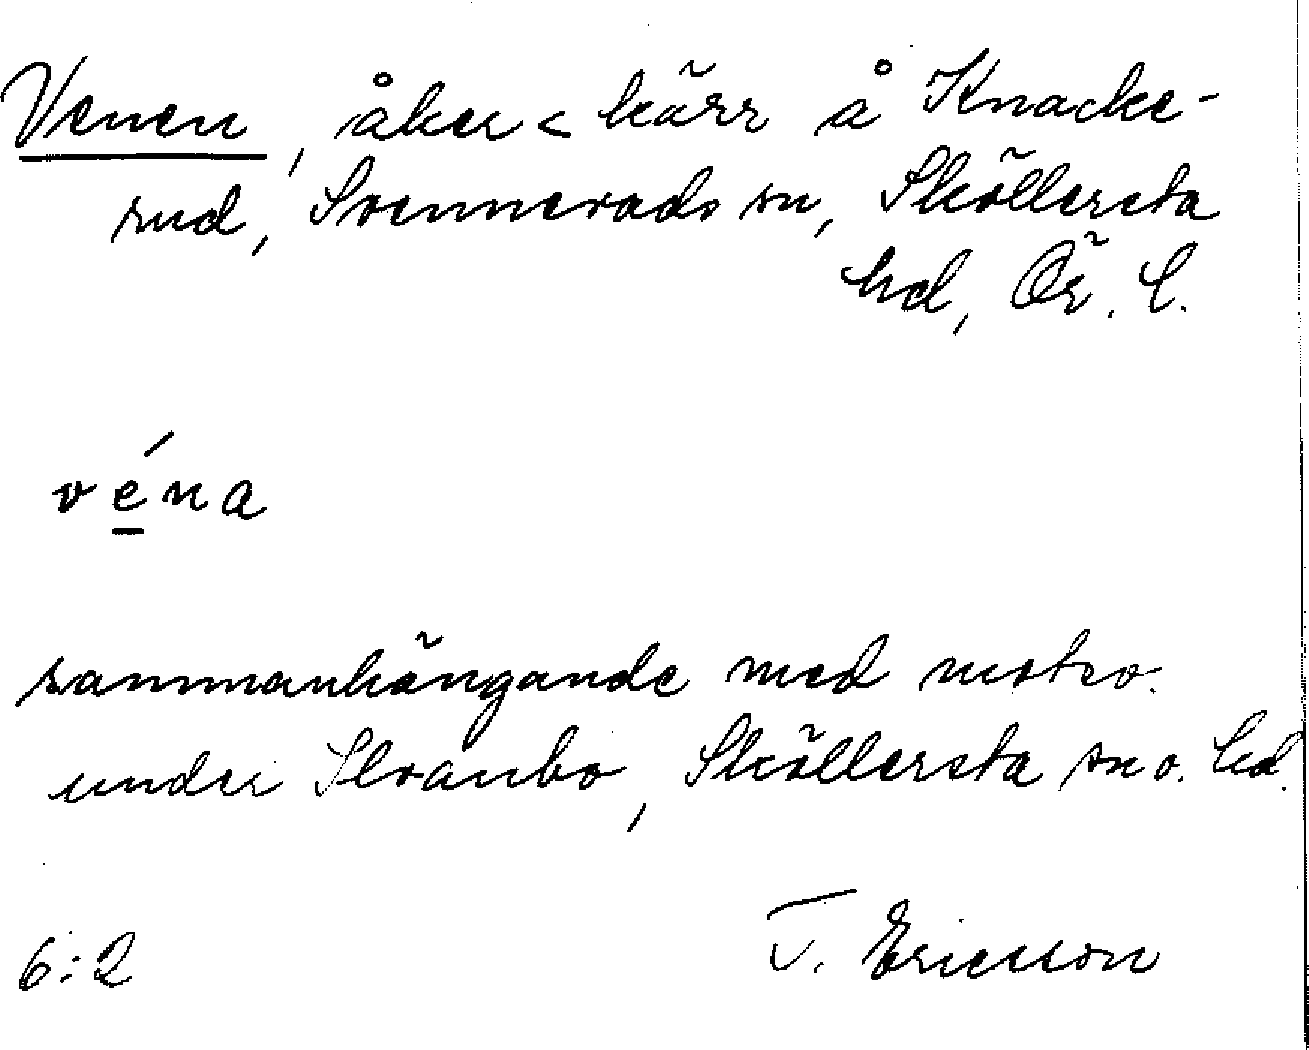 Venen, åker < kärr å Knacke-
rud, Svennevads sn, Sköllersta
hd, Ör. l.
véna
sammanhängande med motsv.
under Skvanbo, Sköllersta sn o. hd.
6:2
T. Ericsson